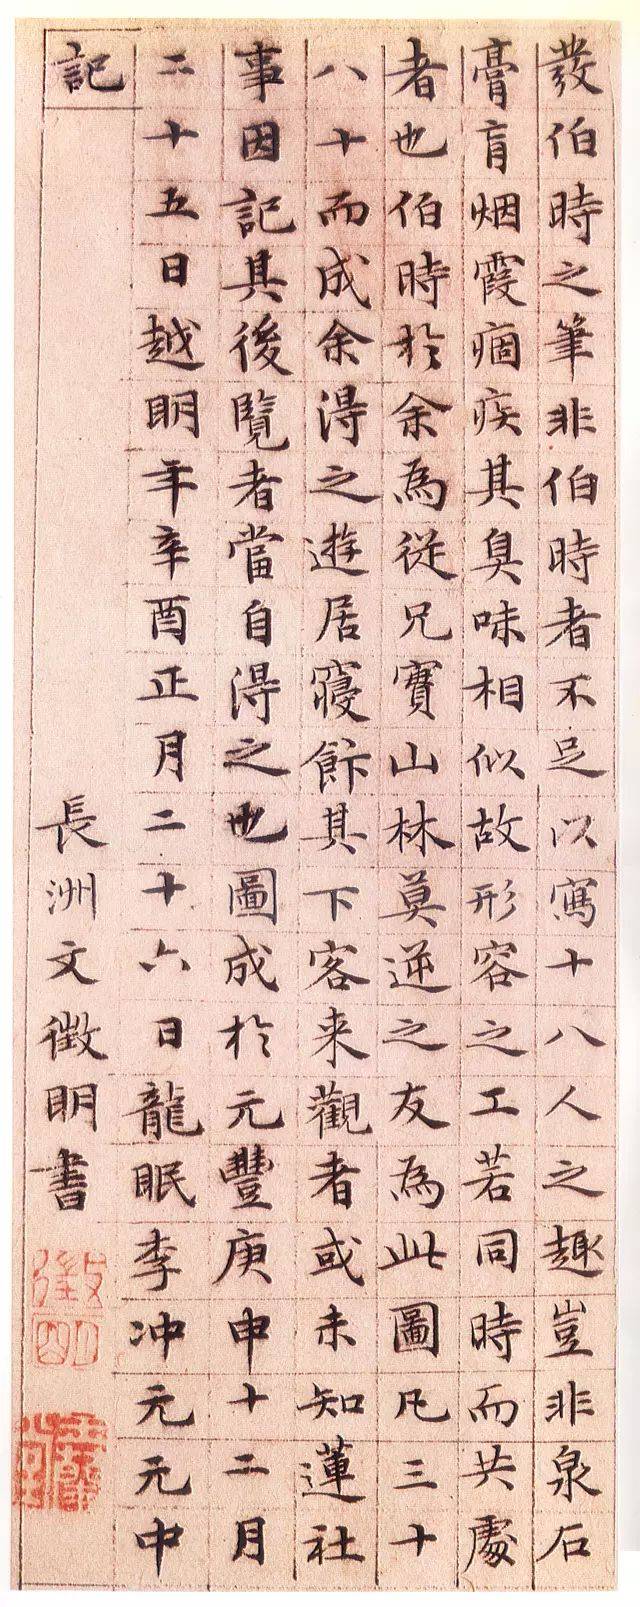 發伯時之筆非伯時者不足以寫十八人之趣豈非泉石
膏肓烟霞痼疾其臭味相似故形容之工若同時而共處
者也伯時於余為從兄實山林莫逆之友為此圖凡三十
八十而成余得之遊居寢飰其下客来觀者或未知蓮社
事因記其後覽者當自得之也圖成於元豐庚申十二月
二十五日越明年辛酉正月二十六日龍眠李冲元元中
記
長洲文徵明書
徵明